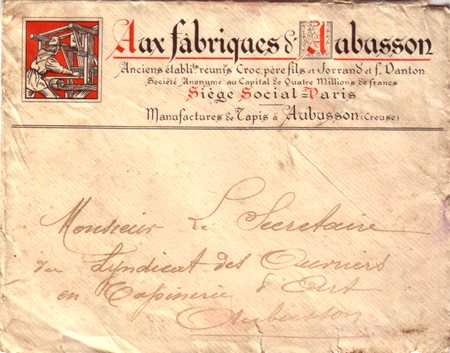 Aux fabriques d'Aubusson
Anciens établits réunis Croc, père fils et Jorrand et f. Danton
Société Anonyme au Capital de Quatre Millions de francs
Siège Social = Paris
Manufactures de Tapis à Aubusson (Creuse)
Monsieur Le Secretaire
du Syndicat des Ouvriers
en Tapisserie d'Art
Aubusson